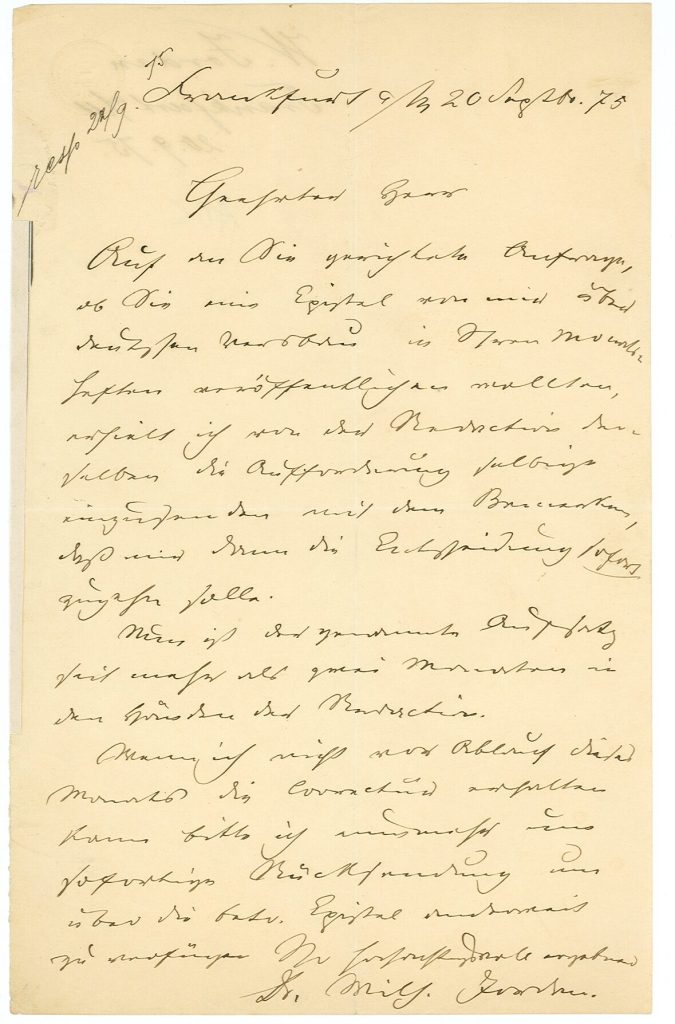 resp 22/9. 75
Frankfurt a/M 20 Septbr. 75
Geehrter Herr
Auf an Sie gerichtete Anfrage,
ob Sie eine Epistel von mir über
deutschen Versbau in Ihren Monats-
heften veröffentlichen wollten,
erhielt ich von der Redaction der-
selben die Aufforderung selbige
einzusenden mit dem Bemerken,
daß mir dann die Entscheidung sofort
zugehen solle.
Nun ist der genannte Aufsatz
seit mehr als zwei Monaten in
den Händen der Redaction.
Wenn ich nicht vor Ablauf dieses
Monats die Correctur erhalten
kann bitte ich nunmehr um
sofortige Rücksendung um
über die betr. Epistel anderweit
zu verfügen Ihr hochachtungsvoll ergebener
Dr. Wilh. Jordan.